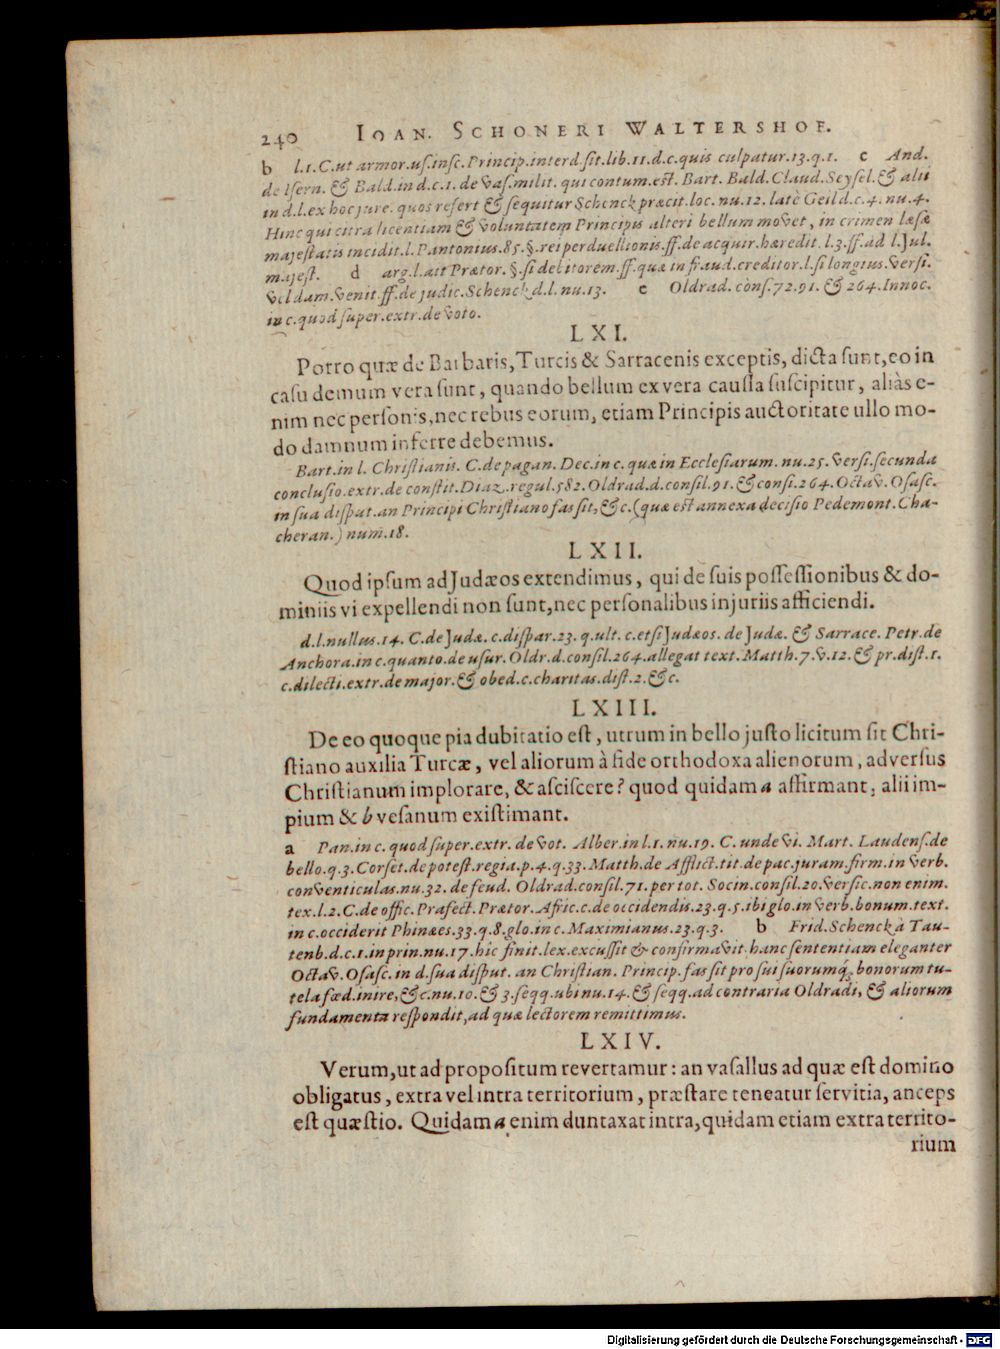 240 IOAN. SCHONERI WALTERSHOF.
b l.1.C.ut armor.us.insc.Princip.interd.sit.lib.11.d.c.quis culpatur.13.q.1. c And.
de Isern. & Bald.in d.c.1.de vas.milit. qui contum.est. Bart. Bald. Claud. Seysel. & alii
in d.l.ex hoc jure. quos refert & sequitur Schenck præcit.loc. nu.12. latè Geild.c.4. nu.4.
Hinc qui citra licentiam & voluntatem Principis alteri bellum movet, in crimen læsæ
majestatis incidit.l.Pantonius.85.§.rei perduellionis.ff.de acquir.hæredit.l.3.ff.ad l.Jul.
majest. d arg.l.ait Prætor.§.si debitorem.ff.quæ in fraud.creditor.l.si longius.versi.
veldam.venit.ff.de judic.Schenck d.l.nu.13. e Oldrad. cons.72.91. & 264.Innoc.
in c.quod super.extr.de voto.
LXI.
Porro quæ de Barbaris, Turcis & Sarracenis exceptis, dicta sunt, eo in
casu demum vera sunt, quando bellum ex vera caussa suscipitur, aliàs e-
nim nec personis, nec rebus eorum, etiam Principis auctoritate ullo mo-
do damnum inferre debemus.
Bart.in l. Christianis. C.de pagan. Dec.in c. quæ in Ecclesiarum. nu.25. versi.secunda
conclusio.extr.de constit.Diaz.regul.582.Oldrad.d.consil.91.& consi.264.Octav.Osasc.
in sua disput.an Principi Christiano fas sit, &c.(quæ est annexa decisio Pedemont.Cha-
cheran.) num.18.
LXII.
Quod ipsum ad Judæos extendimus, qui de suis possessionibus & do-
miniis vi expellendi non sunt, nec personalibus injuriis afficiendi.
d.l.nullus.14. C.de Judæ. c.dispar.23. q.ult. c.etsi Judæos. de Judæ. & Sarrace. Petr.de
Anchora.in c.quanto.de usur. Oldr.d.consil.264.allegat text. Matth.7.v.12.& pr.dist.1.
c.dilecti.extr.de major.& obed.c.charitas.dist.2.&c.
LXIII.
De eo quoque pia dubitatio est, utrum in bello justo licitum sit Chri-
stiano auxilia Turcæ, vel aliorum à fide orthodoxa alienorum, adversus
Christianum implorare, & asciscere? quod quidam a affirmant, alii im-
pium & b vesanum existimant.
a Pan.in c. quod super.extr. de vot. Alber.in l.1. nu.19. C. unde vi. Mart. Laudens.de
bello.q.3.Corset.de potest.regia.p.4.q.33.Matth.de Afflict.tit.de pac.juram.firm.in verb.
conventiculas.nu.32. de feud. Oldrad.consil.71.per tot. Socin.consil.20.versic.non enim.
tex.l.2.C.de offic.Præfect.Prætor.Afric.c.de occidendis.23.q.5.ibi glo.in verb.bonum.text.
in c.occiderit Phinaes.33.q.8.glo.in c.Maximianus.23.q.3. b Frid.Schenck à Tau-
tenb.d.c.1.in prin.nu.17.hic finit.lex.excussit & confirmavit hanc sententiam eleganter
Octav.Osasc. in d.sua disput. an Christian. Princip.fas sit pro sui suorumq; bonorum tu-
tela fœd.inire,&c.nu.10.& 3.seqq.ubi nu.14.& seqq.ad contraria Oldradi, & aliorum
fundamenta respondit, ad quæ lectorem remittimus.
LXIV.
Verum, ut ad propositum revertamur: an vasallus ad quæ est domino
obligatus, extra vel intra territorium, præstare teneatur servitia, anceps
est quæstio. Quidam a enim duntaxat intra, quidam etiam extra territo-
rium
Digitalisierung gefördert durch die Deutsche Forschungsgemeinschaft - DFG